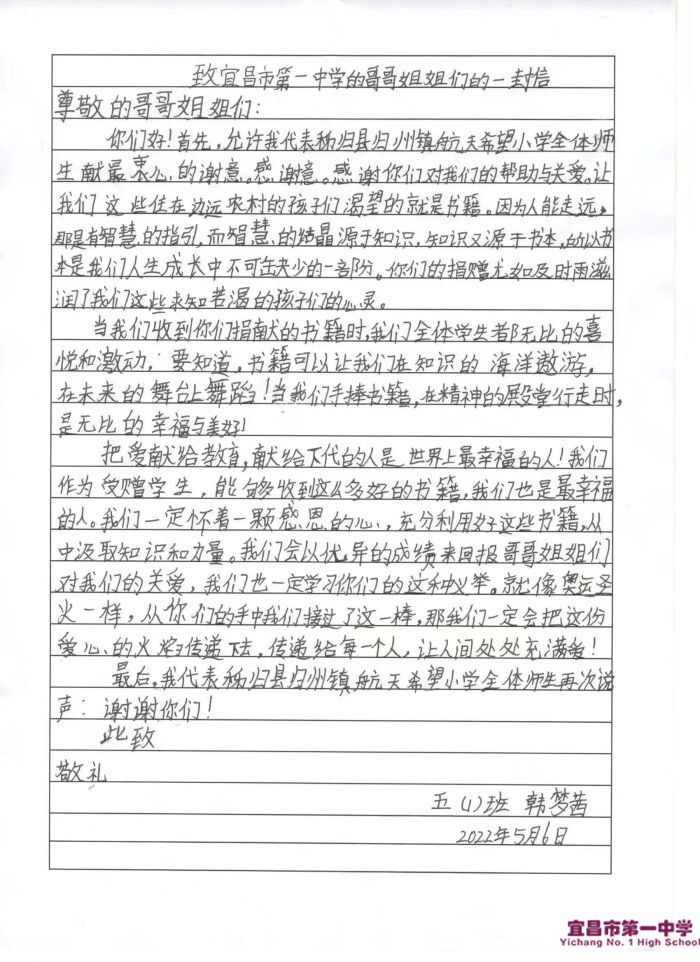 致宜昌市第一中学的哥哥姐姐们的一封信
尊敬的哥哥姐姐们：
你们好！首先，允许我代表秭归县归州镇航天希望小学全体师
生献最衷心的谢意。感谢意。感谢你们对我们的帮助与关爱。让
我们这些住在边远农村的孩子们渴望的就是书籍。因为人能走远，
那是有智慧的指引，而智慧的结晶源于知识，知识又源于书本。所以书
本是我们人生成长中不可缺少的一部份。你们的捐赠尤如及时雨滋
润了我们这些求知若渴的孩子们的心灵。
当我们收到你们捐献的书籍时，我们全体学生都无比的喜
悦和激动，要知道，书籍可以让我们在知识的海洋遨游，
在未来的舞台上舞蹈！当我们手捧书籍，在精神的殿堂行走时，
是无比的幸福与美好！
把爱献给教育，献给下代的人是世界上最幸福的人！我们
作为受赠学生，能够收到这么多好的书籍，我们也是最幸福
的人。我们一定怀着一颗感恩的心，充分利用好这些书籍，从
中汲取知识和力量。我们会以优异的成绩来回报哥哥姐姐们
对我们的关爱，我们也一定学习你们的这种义举。就像奥运圣
火一样，从你们的手中我们接过了这一棒，那我们一定会把这份
爱心的火焰传递下去，传递给每一个人，让人间处处充满爱！
最后，我代表秭归县归州镇航天希望小学全体师生再次说
声：谢谢你们！
此致
敬礼
五（1）班 韩梦茜
2022年5月6日
宜昌市第一中学
Yichang No. 1 High School